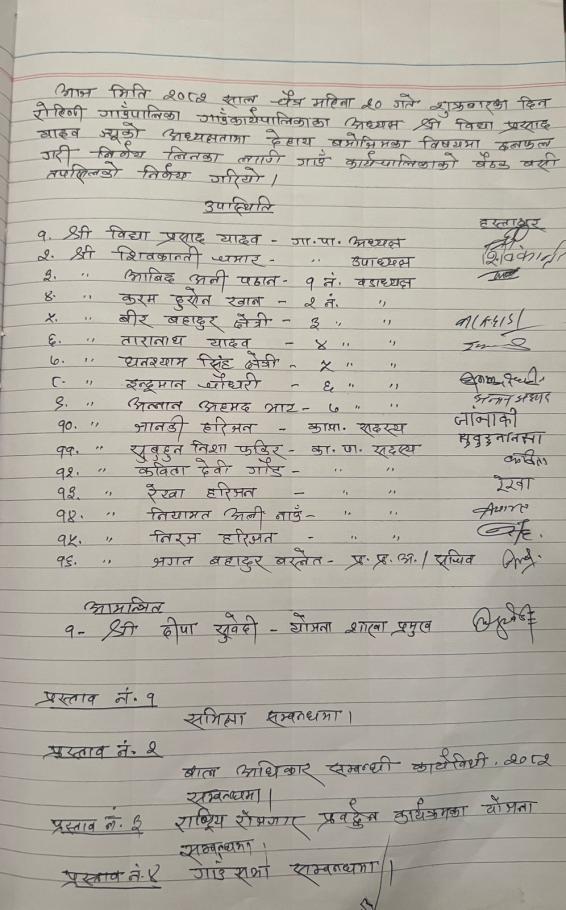 आज मिति २०८२ साल चैत्र महिना २० गते शुक्रबारका दिन
रोहिणी गाउँपालिका गाउँकार्यपालिकाका अध्यक्ष श्री विद्या प्रसाद
यादव ज्यूको अध्यक्षतामा देहाय बमोजिमका विषयमा छलफल
गरी निर्णय लिनका लागी गाउँ कार्यपालिकाको बैठक बसी
तपसिलको निर्णय गरियो।
उपस्थिति
हस्ताक्षर
१. श्री विद्या प्रसाद यादव - गा.पा. अध्यक्ष
२. श्री शिवकान्ती चमार - " उपाध्यक्ष शिवकान्ती
३. " आबिद अली पठान - १ नं. वडाध्यक्ष
४. " करम हुसेन खान - २ नं. "
५. " बीर बहादुर क्षेत्री - ३ " "
६. " तारानाथ यादव - ४ " "
७. " घनश्याम सिंह क्षेत्री - ५ " "
८. " इन्द्रमान चौधरी - ६ " "
९. " अहमद भाट - ७ " "
१०. " जानकी हरिजन - कापा. सदस्य जानाकी
११. " सुबुहुन निशा फकिर - का. पा. सदस्य
१२. " कविता देवी गौड - " " कविता
१३. " रेखा हरिजन - " " रेखा
१४. " नियामत अली नाउँ - " "
१५. " हरिजन - " "
१६. " भगत बहादुर बस्नेत - प्र. प्र. अ. / सचिव
आमन्त्रित
१- श्री दीपा सुवेदी - योजना शाखा प्रमुख
प्रस्ताव नं. १
समिक्षा सम्बन्धमा।
प्रस्ताव नं. २
बाल अधिकार सम्बन्धी कार्यविधी, २०८२
सम्बन्धमा।
प्रस्ताव नं. ३ राष्ट्रिय रोजगार प्रवर्द्धन कार्यक्रमका योजना
सम्बन्धमा।
प्रस्ताव नं. ४ गाउँ सभा सम्बन्धमा।